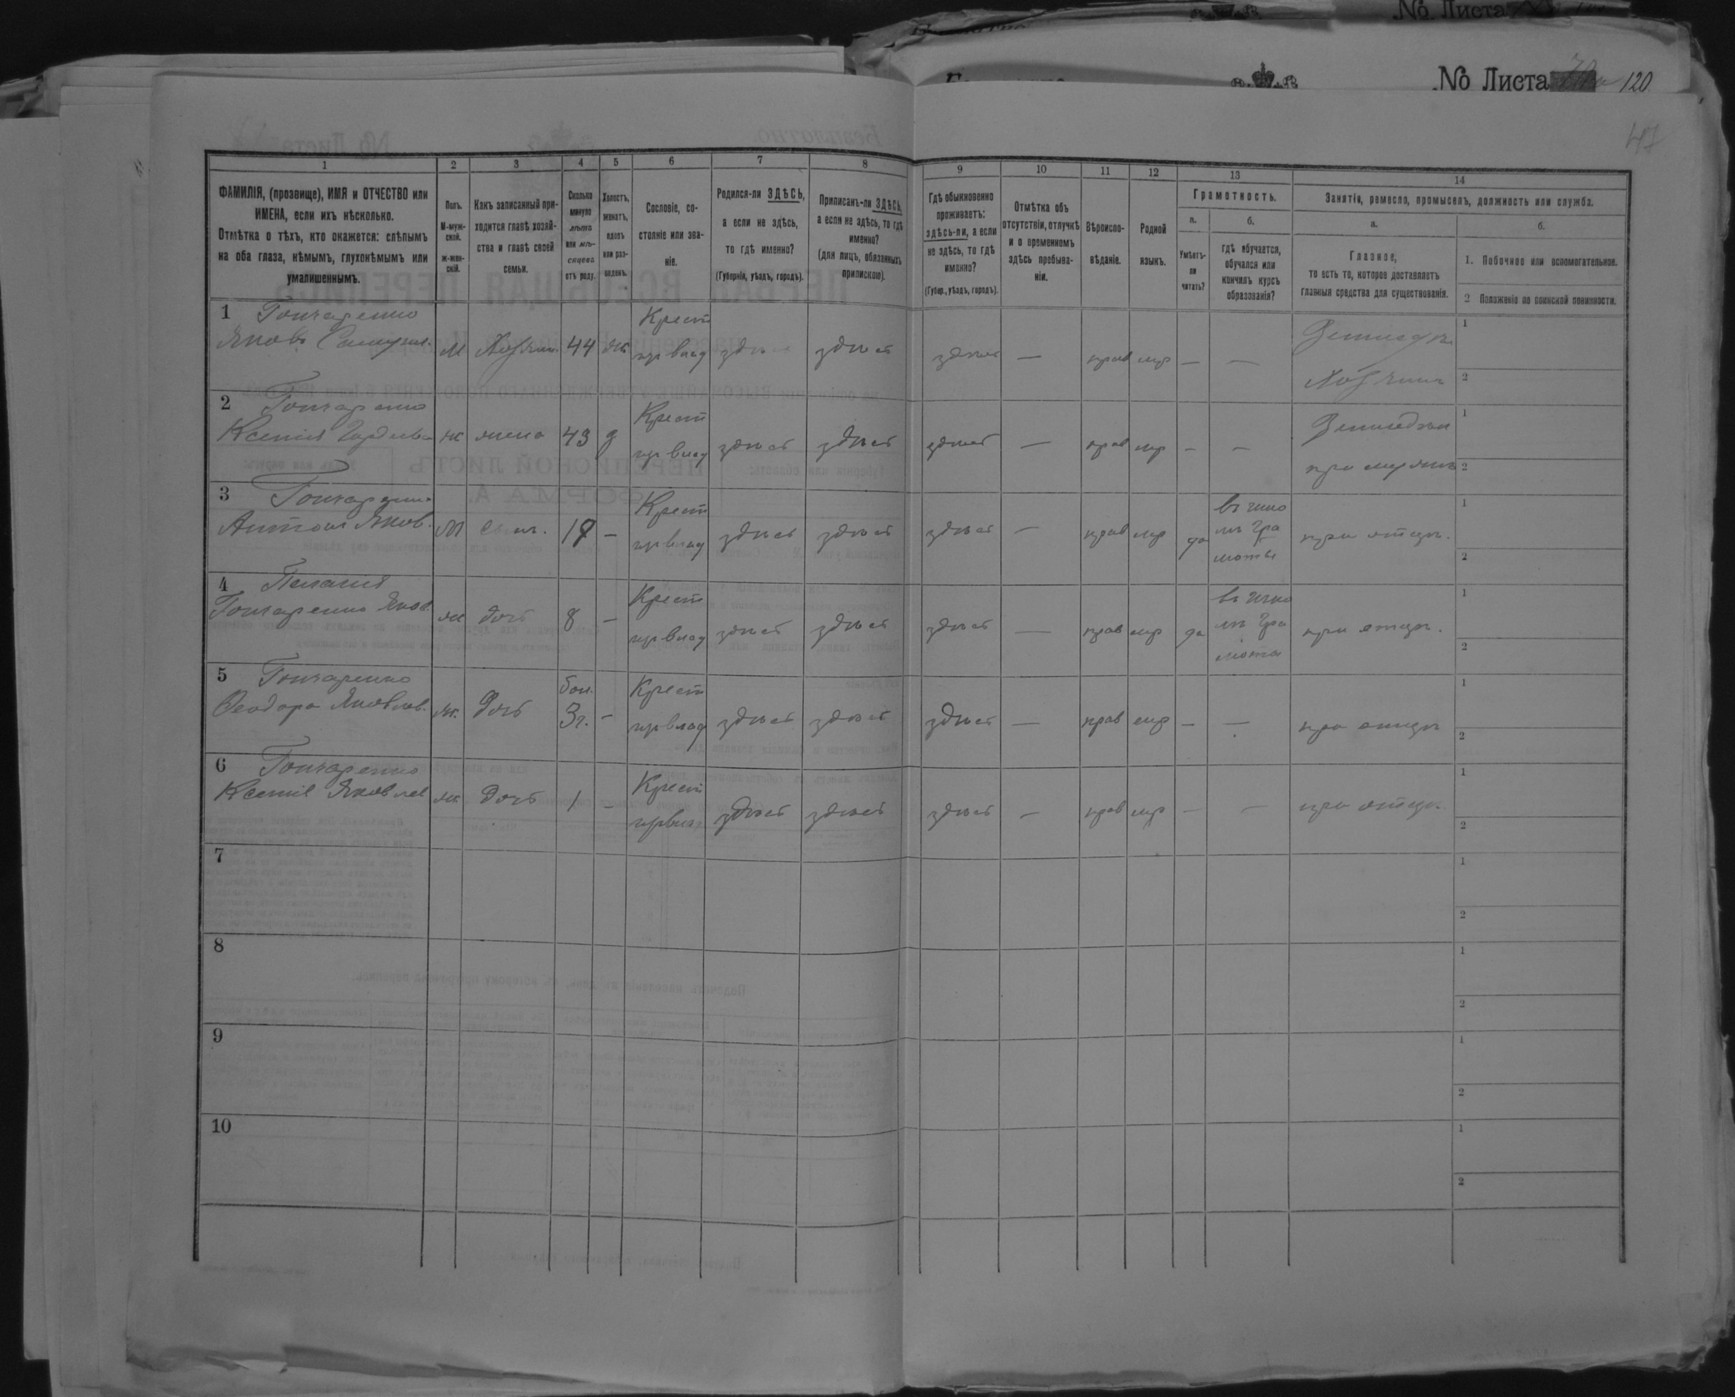 No Листа
No Листа 120
47
1 2 3 4 5 6 7 8 9 10 11 12 13 14
ФАМИЛІЯ, (прозвище), ИМЯ и ОТЧЕСТВО или
ИМЕНА, если ихъ нѣсколько.
Отмѣтка о тѣхъ, кто окажется: слѣпымъ
на оба глаза, нѣмымъ, глухонѣмымъ или
умалишеннымъ.
Полъ.
М-муж-
ской.
ж-жен-
скій.
Какъ записанный при-
ходится главѣ хозяй-
ства и главѣ своей
семьи.
Сколько
минуло
лѣтъ
или мѣ-
сяцевъ
отъ роду.
Холостъ,
женатъ,
вдовъ
или раз-
веденъ.
Сословіе, со-
стояніе или зва-
ніе.
Родился-ли ЗДѢСЬ,
а если не здѣсь,
то гдѣ именно?
(Губернія, уѣздъ, городъ).
Приписанъ-ли ЗДѢСЬ,
а если не здѣсь, то гдѣ
именно?
(для лицъ, обязанныхъ
припискою).
Гдѣ обыкновенно
проживаетъ:
здѣсь-ли, а если
не здѣсь, то гдѣ
именно?
(Губер., уѣздъ, городъ).
Отмѣтка объ
отсутствіи, отлучкѣ
и о временномъ
здѣсь пребыва-
ніи.
Вѣроиспо-
вѣданіе.
Родной
языкъ.
Грамотность.
а.
Умѣетъ-
ли
читать?
б.
гдѣ обучается,
обучался или
кончилъ курсъ
образованія?
Занятіе, ремесло, промыселъ, должность или служба.
а.
Главное,
то есть то, которое доставляетъ
главныя средства для существованія.
б.
1. Побочное или вспомогательное.
2 Положеніе по воинской повинности.
1 Гончаренко
Яковъ м Хозяинъ 44 жк Крест здѣсь здѣсь здѣсь — прав мр — — Хозяинъ 1 2
2 Гончаренко
Ксенія ж жена 43 з Крест здѣсь здѣсь здѣсь — прав мр — — 1 2
3 Гончаренко
Антонъ Яков. м сынъ. — Крест здѣсь здѣсь здѣсь — прав мр да въ шко
лѣ гра
моты при отцѣ. 1 2
4 Пелагія
Гончаренко Яков ж дочь 8 — Крест здѣсь здѣсь здѣсь — прав мр да въ шко
лѣ гра
моты при отцѣ. 1 2
5 Гончаренко
Ѳеодора Яковлев. ж. дочь 3г. — Крест здѣсь здѣсь здѣсь — прав мр — — при отцѣ 1 2
6 Гончаренко
Ксенія Яковлев ж дочь 1 — Крест здѣсь здѣсь здѣсь — прав мр — — при отцѣ 1 2
7 1 2
8 1 2
9 1 2
10 1 2